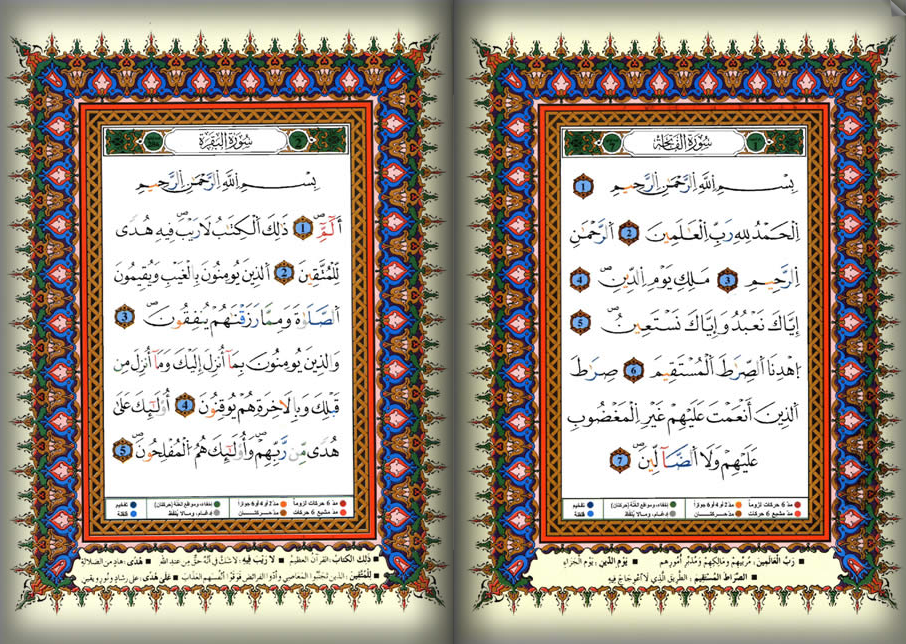 1 سُورَةُ الفَاتِحَة
بِسْمِ اِللَّهِ اِلرَّحْمَٰنِ اِلرَّحِيمِ 1
اِلْحَمْدُ لِلهِ رَبِّ اِلْعَٰلَمِينَ 2 اَلرَّحْمَٰنِ
اِلرَّحِيمِ 3 مَلِكِ يَوْمِ اِلدِّينِ 4
إِيَّاكَ نَعْبُدُ وَإِيَّاكَ نَسْتَعِينُ 5
اِهْدِنَا اَلصِّرَٰطَ اَلْمُسْتَقِيمَ 6 صِرَٰطَ
اَلذِينَ أَنْعَمْتَ عَلَيْهِمْ غَيْرِ اِلْمَغْضُوبِ
عَلَيْهِمْ وَلَا اَلضَّآلِّينَ 7
مدّ 6 حركات لزوماً مدّ 2 أو 4 أو 6 جوازاً إخفاء، ومواقع الغنّة (حركتان) تفخيم
مدّ مشبع 6 حركات مدّ حركتان إدغام، وما لا يُلفظ قلقلة
▪ رَبِّ الْعَالَمِينَ: مُرَبِّيهِمْ وَمَالِكِهِمْ وَمُدَبِّرِ أُمُورِهِم ▪ يَوْمِ الدِّينِ: يَوْمِ الجَزَاءِ
▪ الصِّرَاطَ المُسْتَقِيمَ: الطَّرِيقَ الَّذِي لَا اعْوِجَاجَ فِيهِ
2 سُورَةُ البَقَرَة
بِسْمِ اِللَّهِ اِلرَّحْمَٰنِ اِلرَّحِيمِ
أَلَٓمِّٓ 1 ذَٰلِكَ اَلْكِتَٰبُ لَا رَيْبَ فِيهِ هُدىً
لِّلْمُتَّقِينَ 2 اَلذِينَ يُومِنُونَ بِالْغَيْبِ وَيُقِيمُونَ
اَلصَّلَوٰةَ وَمِمَّا رَزَقْنَٰهُمْ يُنفِقُونَ 3
وَالذِينَ يُومِنُونَ بِمَآ أُنزِلَ إِلَيْكَ وَمَآ أُنزِلَ مِن
قَبْلِكَ وَبِالَاخِرَةِ هُمْ يُوقِنُونَ 4 أُوْلَٰٓئِكَ عَلَىٰ
هُدىً مِّن رَّبِّهِمْ وَأُوْلَٰٓئِكَ هُمُ اُلْمُفْلِحُونَ 5
مدّ 6 حركات لزوماً مدّ 2 أو 4 أو 6 جوازاً إخفاء، ومواقع الغنّة (حركتان) تفخيم
مدّ مشبع 6 حركات مدّ حركتان إدغام، وما لا يُلفظ قلقلة
▪ ذَلِكَ الكِتَابُ: القُرآنُ العَظِيمُ ▪ لَا رَيْبَ فِيهِ: لَا شَكَّ فِي أَنَّهُ حَقٌّ مِنْ عِنْدِ اللهِ ▪ هُدًى: هَادٍ مِنَ الضَّلالَةِ
▪ لِلْمُتَّقِينَ: الذين تَجَنَّبُوا المَعَاصِي وَأَدَّوُا الفَرَائِضَ فَوَقَوْا أَنْفُسَهُم العَذَابَ ▪ عَلَى هُدًى: عَلَى رَشَادٍ وَنُورٍ وَيَقِينٍ